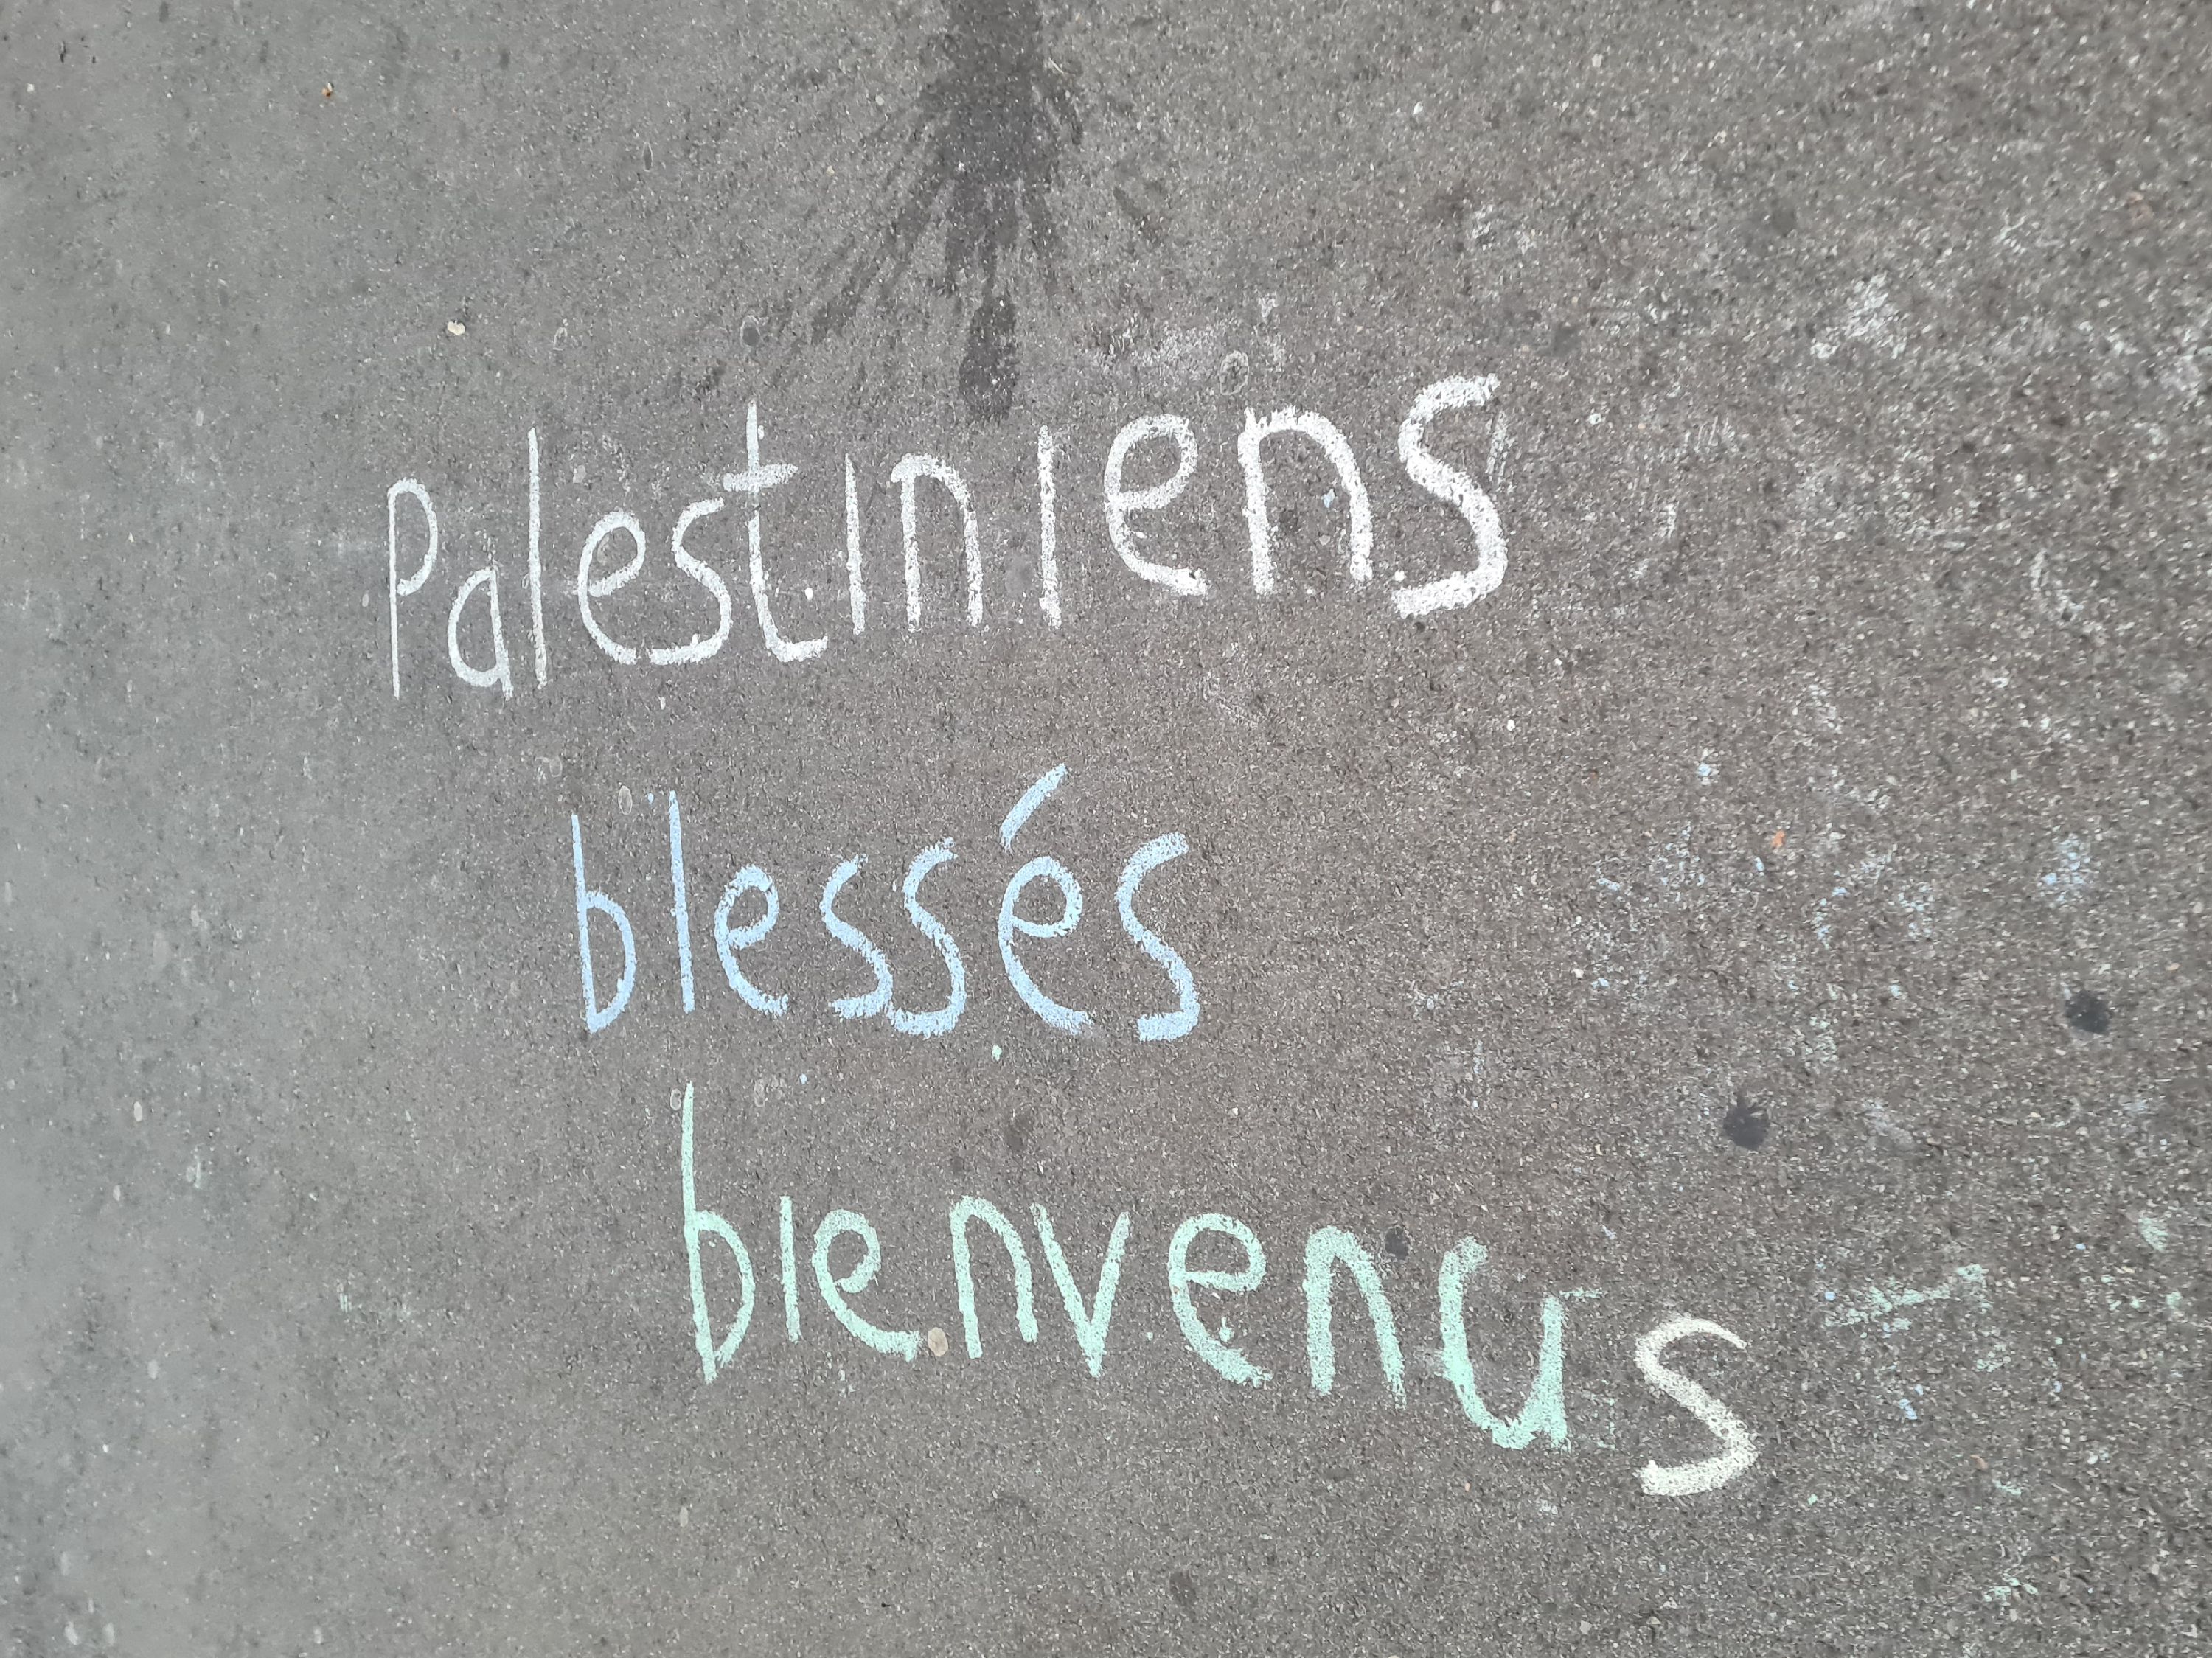 Palestiniens
blessés
bienvenus